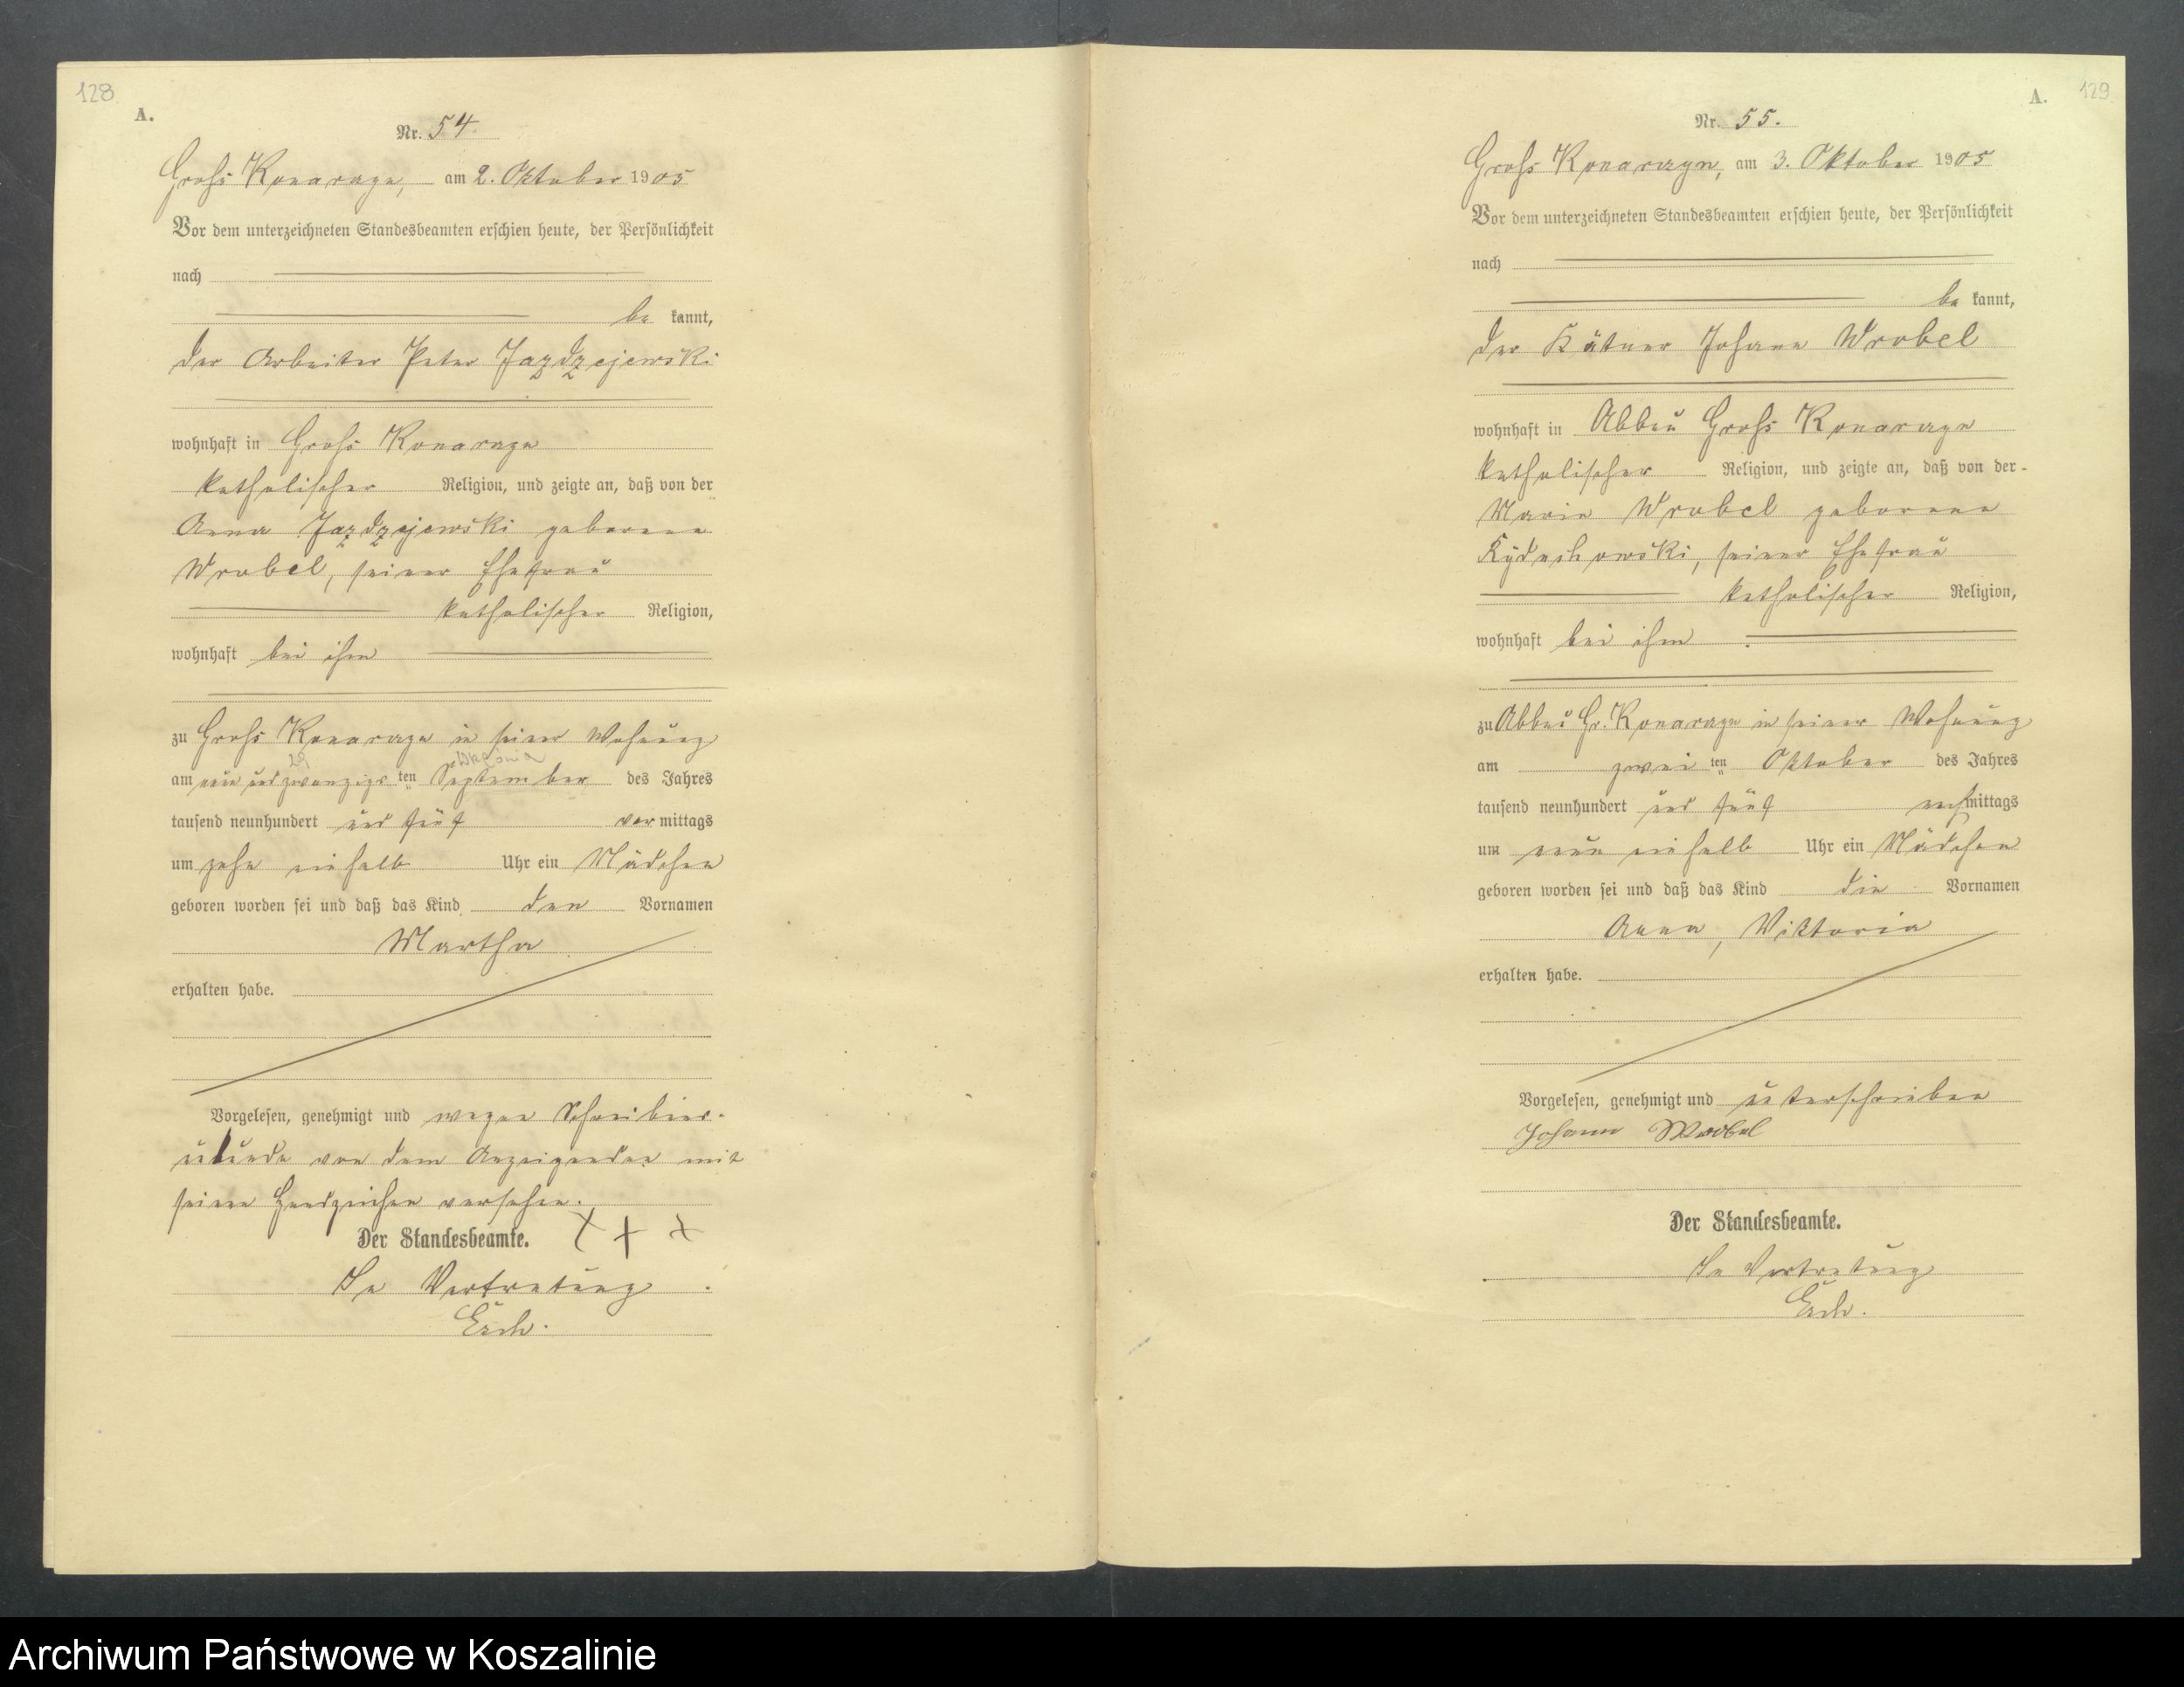 128
A.
Nr. 54.
Groß Konarzyn, am 2. Oktober 1905
Vor dem unterzeichneten Standesbeamten erschien heute, der Persönlichkeit
nach
be kannt,
der Arbeiter Peter Jazdzejewski
wohnhaft in Groß Konarzyn
katholischer Religion, und zeigte an, daß von der
Anna Jazdzejewski geborene
Wrobel, seiner Ehefrau
katholischer Religion,
wohnhaft bei ihm
zu Groß Konarzyn in seiner Wohnung
29 Września
am neun und zwanzigsten September des Jahres
tausend neunhundert und fünf vor mittags
um zehn einhalb Uhr ein Mädchen
geboren worden sei und daß das Kind den Vornamen
Martha
erhalten habe.
Vorgelesen, genehmigt und wegen Schreibens-
unkunde von dem Anzeigenden mit
seinem Handzeichen versehen.
Der Standesbeamte. + + +
In Vertretung
129
A.
Nr. 55.
Groß Konarzyn, am 3. Oktober 1905
Vor dem unterzeichneten Standesbeamten erschien heute, der Persönlichkeit
nach
be kannt,
der Kätner Johann Wrobel
wohnhaft in Abbau Groß Konarzyn
katholischer Religion, und zeigte an, daß von der
Marie Wrobel geborene
seiner Ehefrau
katholischer Religion,
wohnhaft bei ihm
zu Abbau Gr. Konarzyn in seiner Wohnung
am zwei ten Oktober des Jahres
tausend neunhundert und fünf nachmittags
um neun einhalb Uhr ein Mädchen
geboren worden sei und daß das Kind die Vornamen
Anna, Viktoria
erhalten habe.
Vorgelesen, genehmigt und unterschrieben
Johann Wrobel
Der Standesbeamte.
In Vertretung
Archiwum Państwowe w Koszalinie